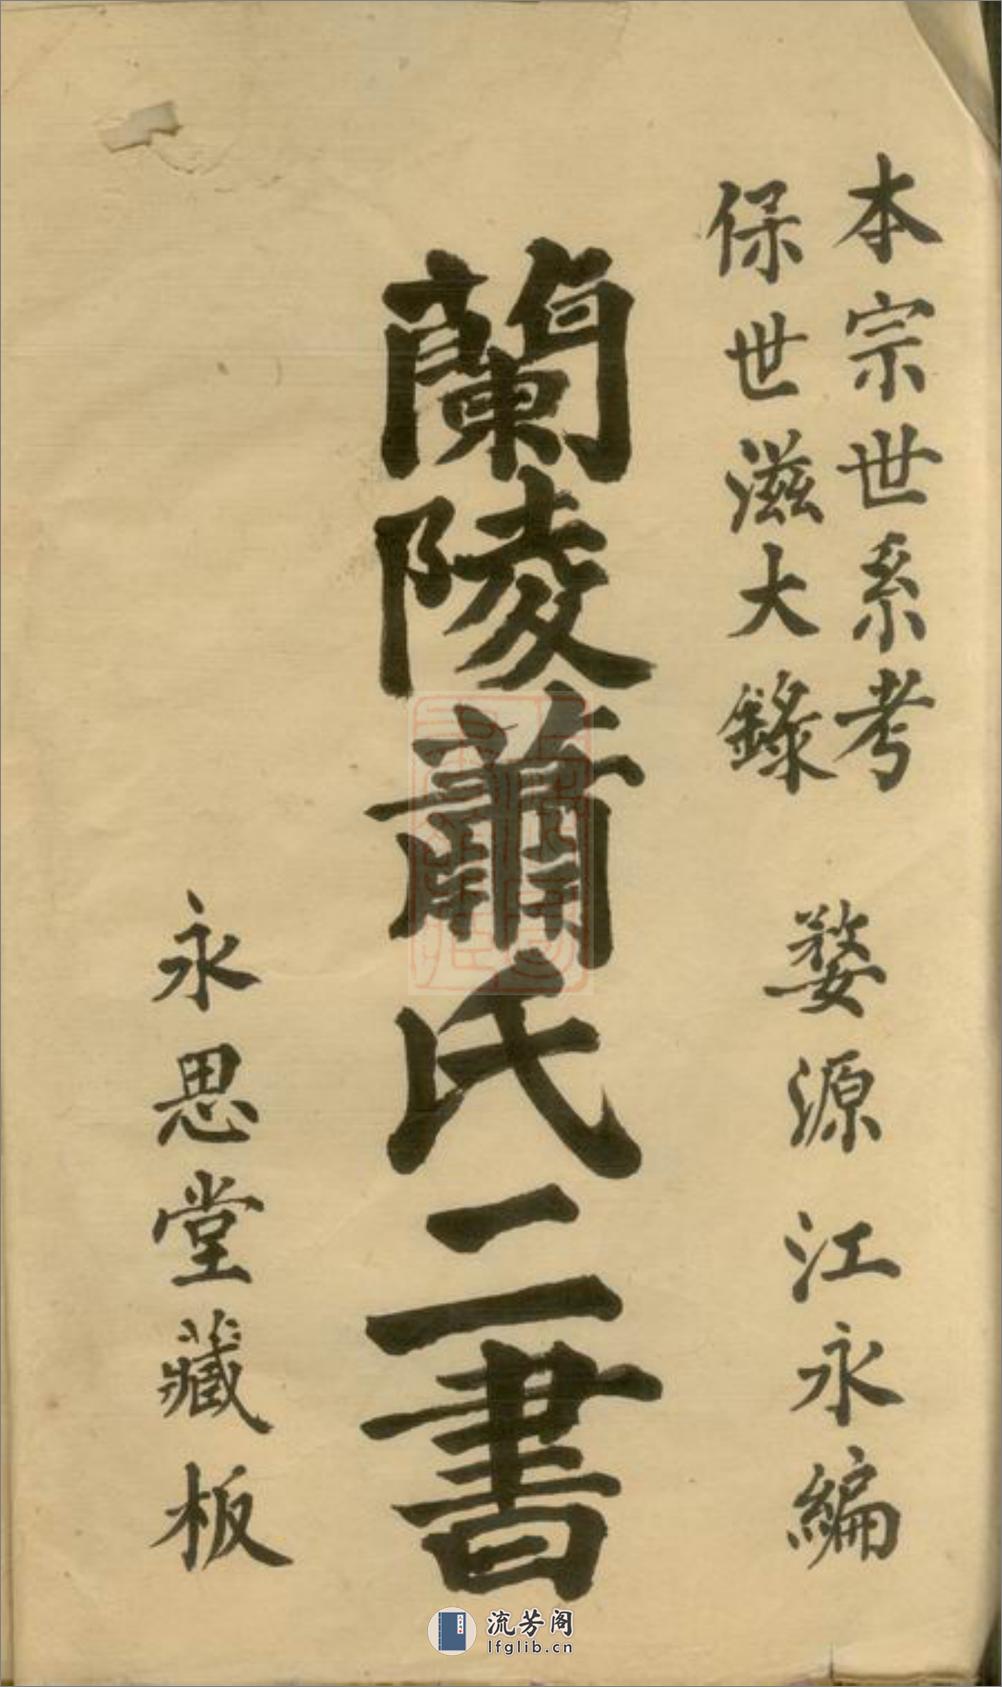 本宗世系考
保世滋大錄
婺源江永編
蘭陵蕭氏二書
永思堂藏板
流芳阁
lfglib.cn